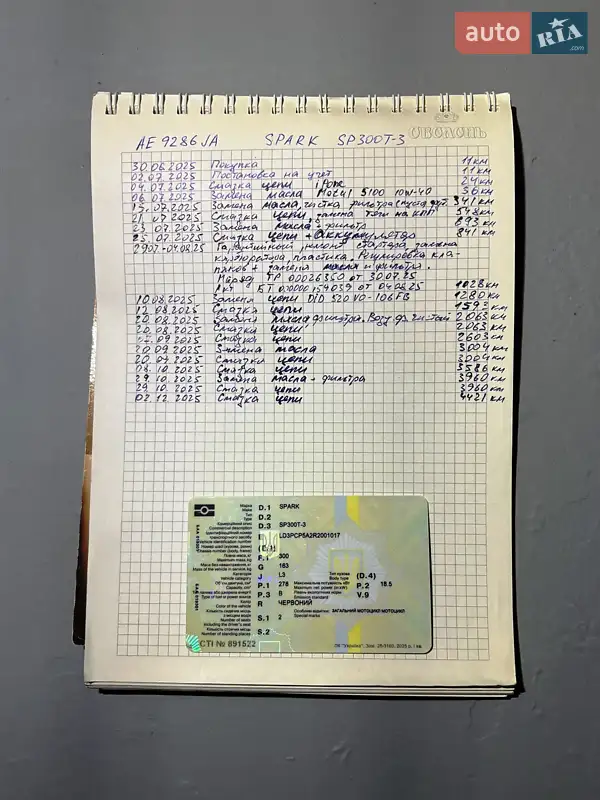 auto RIA.com
ОБОЛОНЬ
AE 9286JA SPARK SP300T-3
30.06.2025 Покупка 11 км
02.07.2025 Постановка на учет 11 км
04.07.2025 Смазка цепи 24 км
06.07.2025 Замена масла Motul 5100 10W-40 36 км
13.07.2025 Замена масла, чистка фильтра 341 км
21.07.2025 Смазка цепи, замена тяги на КПП 548 км
23.07.2025 Замена масла + фильтр
25.07.2025 Смазка цепи 841 км
2907-04.08.25 Гарантийный ремонт стартера, замена
карбюратора, пластика. Регулировка кла-
панов + замена масла и фильтра.
Наряд ТР 00026350 от 30.07.25
Акт от 04.08.25 1028 км
10.08.2025 Замена цепи DID 520 VO-106FB 1280 км
12.08.2025 Смазка цепи
20.08.2025 Замена масла фильтра. 2063 км
20.08.2025 Смазка цепи 2063 км
09.2025 Смазка цепи 2603 км
20.09.2025 Замена масла 3004 км
20.09.2025 Смазка цепи 3004 км
08.10.2025 Смазка цепи 3586 км
29.10.2025 Замена масла + фильтра 3960 км
29.10.2025 Смазка цепи 3960 км
02.12.2025 Смазка цепи 4421 км
D.1 SPARK
D.2
D.3 SP300T-3
E LD3PCP5A2R2001017
F.1 300
G 163
J L3 (D.4)
P.1 278 P.2 18.5
P.3 B V.9
R ЧЕРВОНИЙ
S.1 2 ЗАГАЛЬНИЙ МОТОЦИКЛ-МОТОЦИКЛ
S.2
CTI № 891522